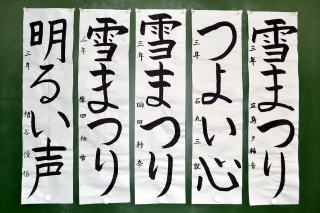 雪まつり
三年
つよい心
三年
雪まつり
三年
雪まつり
三年
明るい声
三年